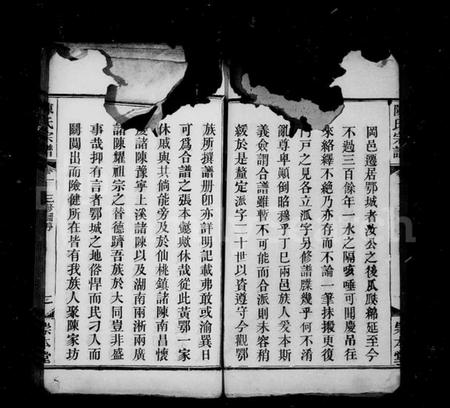 陳氏宗譜
岡邑遷居鄂城者汝公之後瓜瓞綿延至今
不過三百餘年一水之隔咳唾可聞慶弔往
來絡繹不絶乃亦存而不論一筆抹摋更復
門戸之見各立派字另修譜牒幾乎何不淆
亂尊卑顛倒昭穆乎丁巳兩邑族人爰本斯
義僉謂合譜雖暫不可能而合派則未容稍
緩於是釐定派字二十世以資遵守今觀鄂
族所撰譜册卽亦詳明記載弗敢或渝異日
可爲合譜之張本懿歟休哉從此黃鄂一家
休戚與共倘能旁及於仙桃鎮諸陳南昌懷
慶諸陳豫寧上溪諸陳以及湖南兩淅兩廣
諸陳耀祖宗之晉德躋吾族於大同豈非盛
事哉抑有言者鄂城之地俗悍而民刁人而
闤闠出而險健所在皆有我族人聚陳家坊
陳氏宗譜
崇本堂
崇本堂